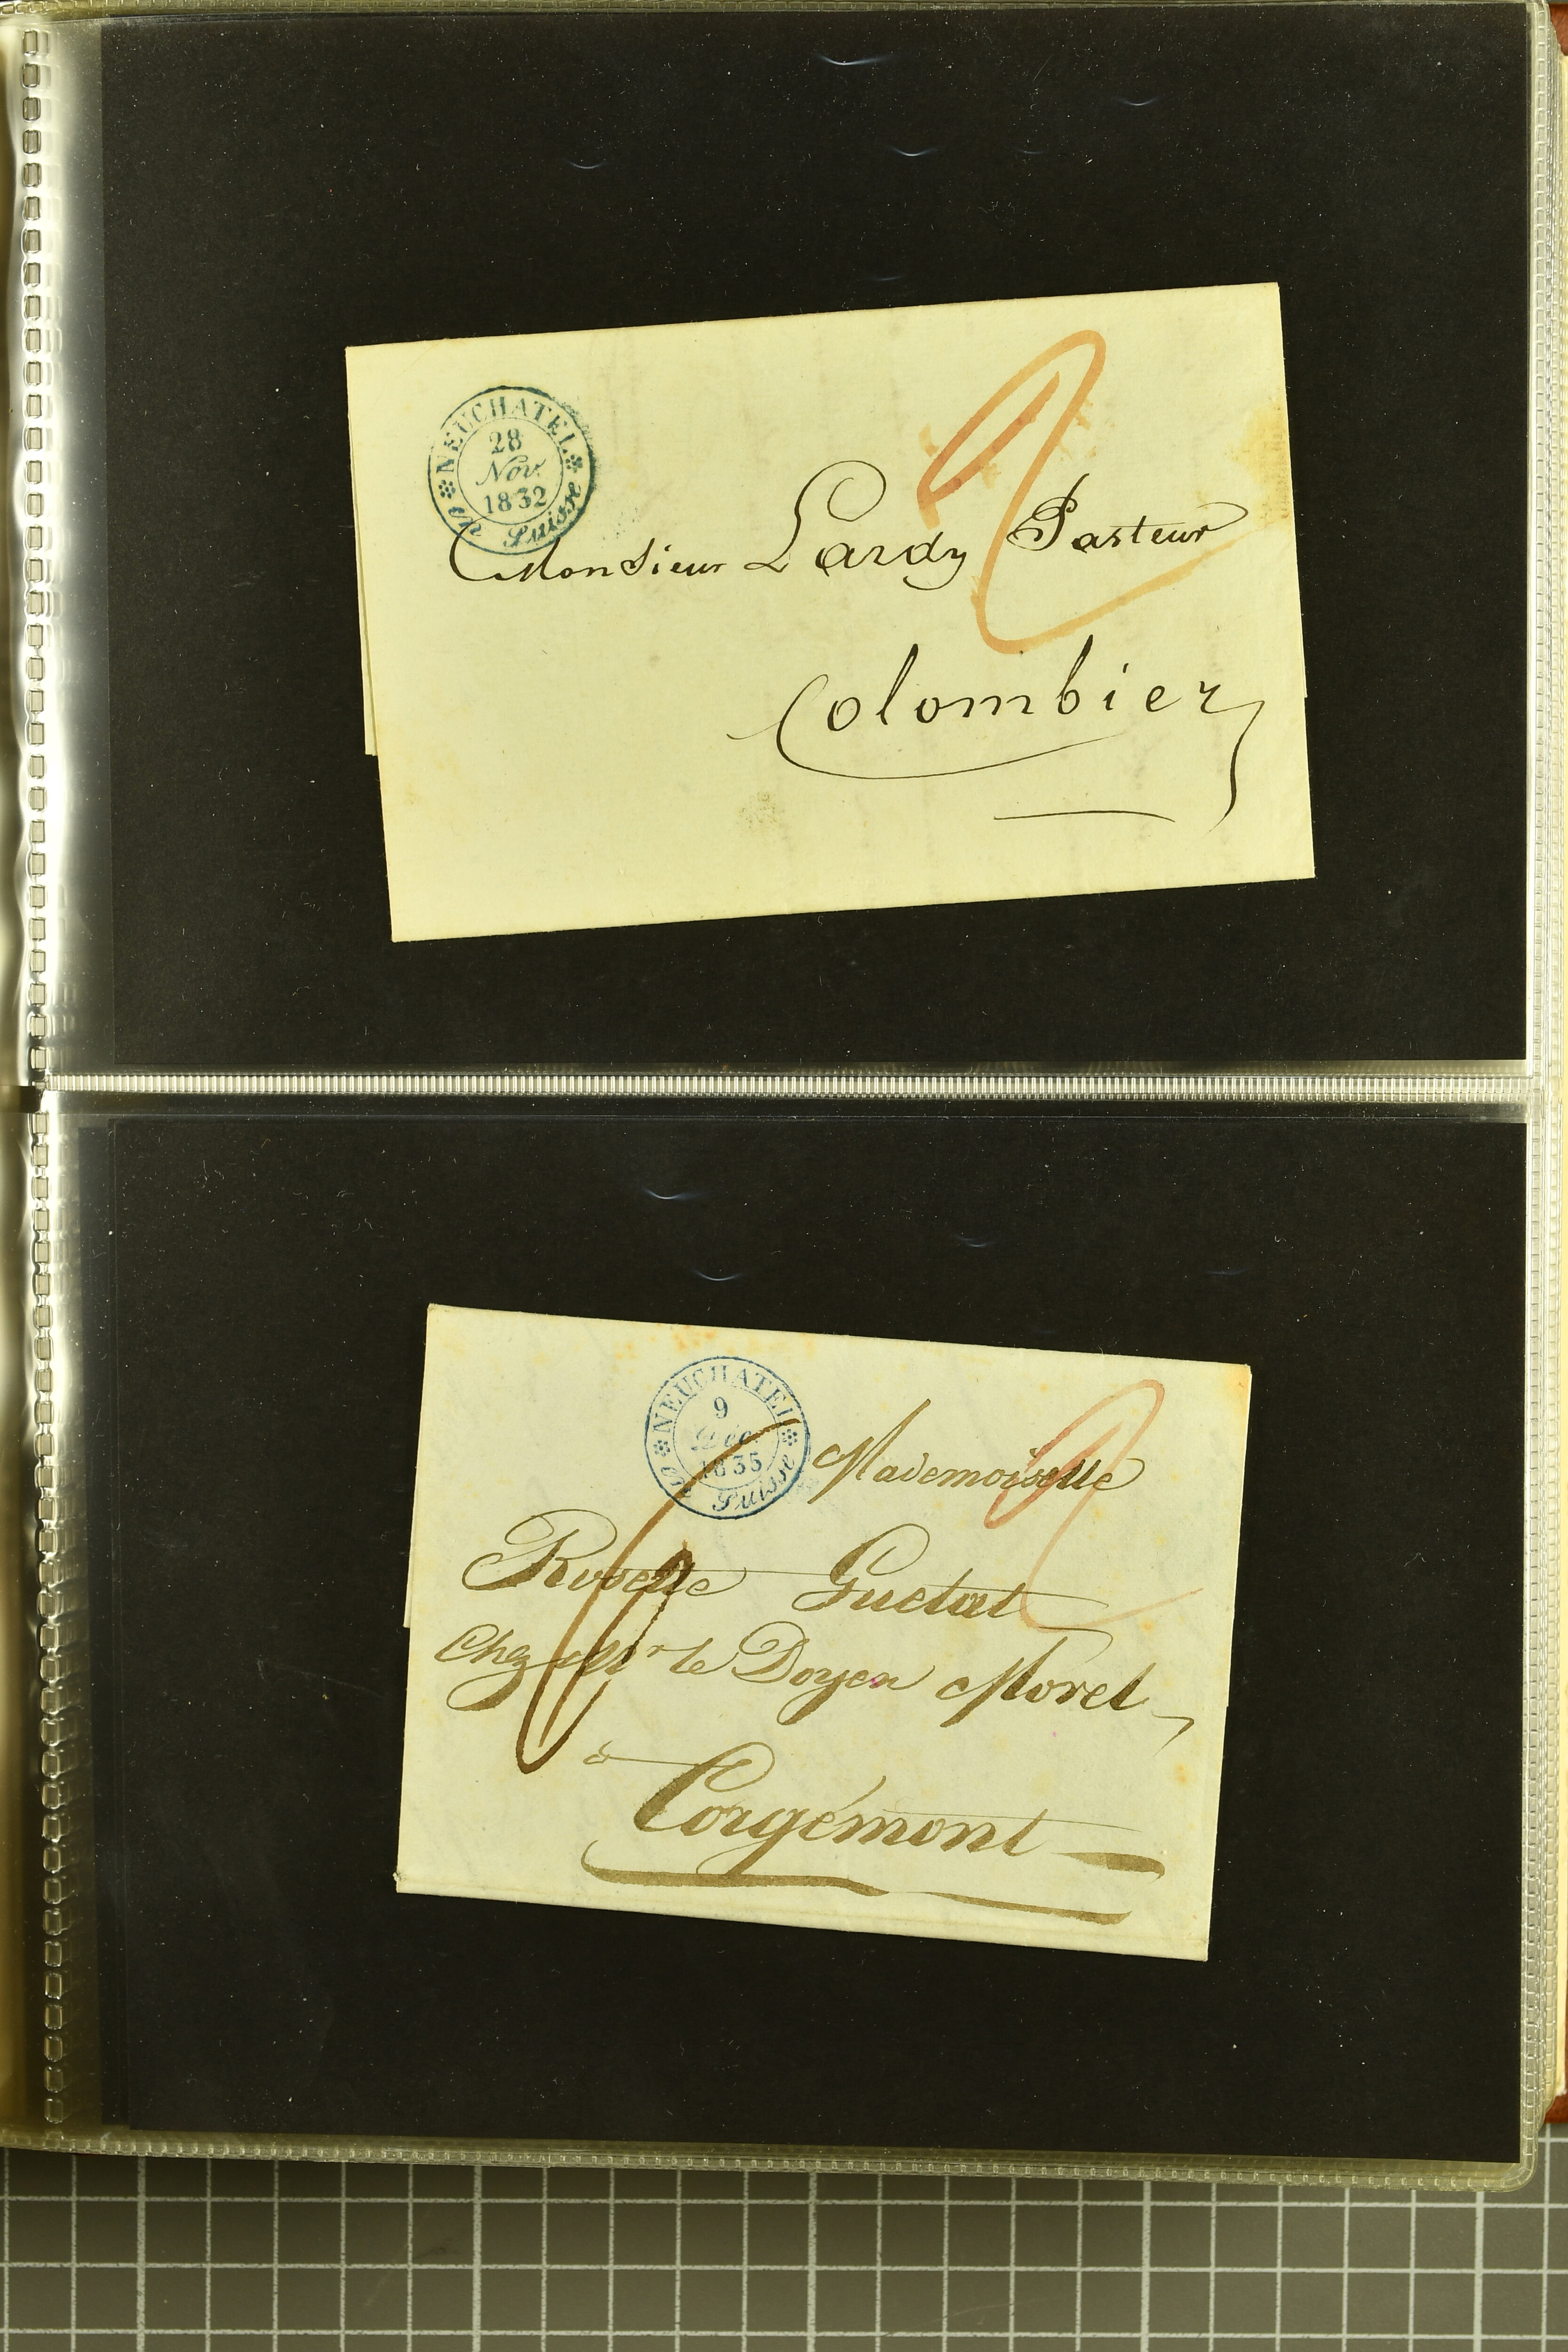 NEUCHATEL
28
Nov.
1832
en Suisse
Monsieur Lardy Pasteur
Colombier
2
NEUCHATEL
9
Déc.
1835
en Suisse
Mademoiselle
2
Rosette Guetat
Chez Mr le Doyen Morel
à
Corgémont